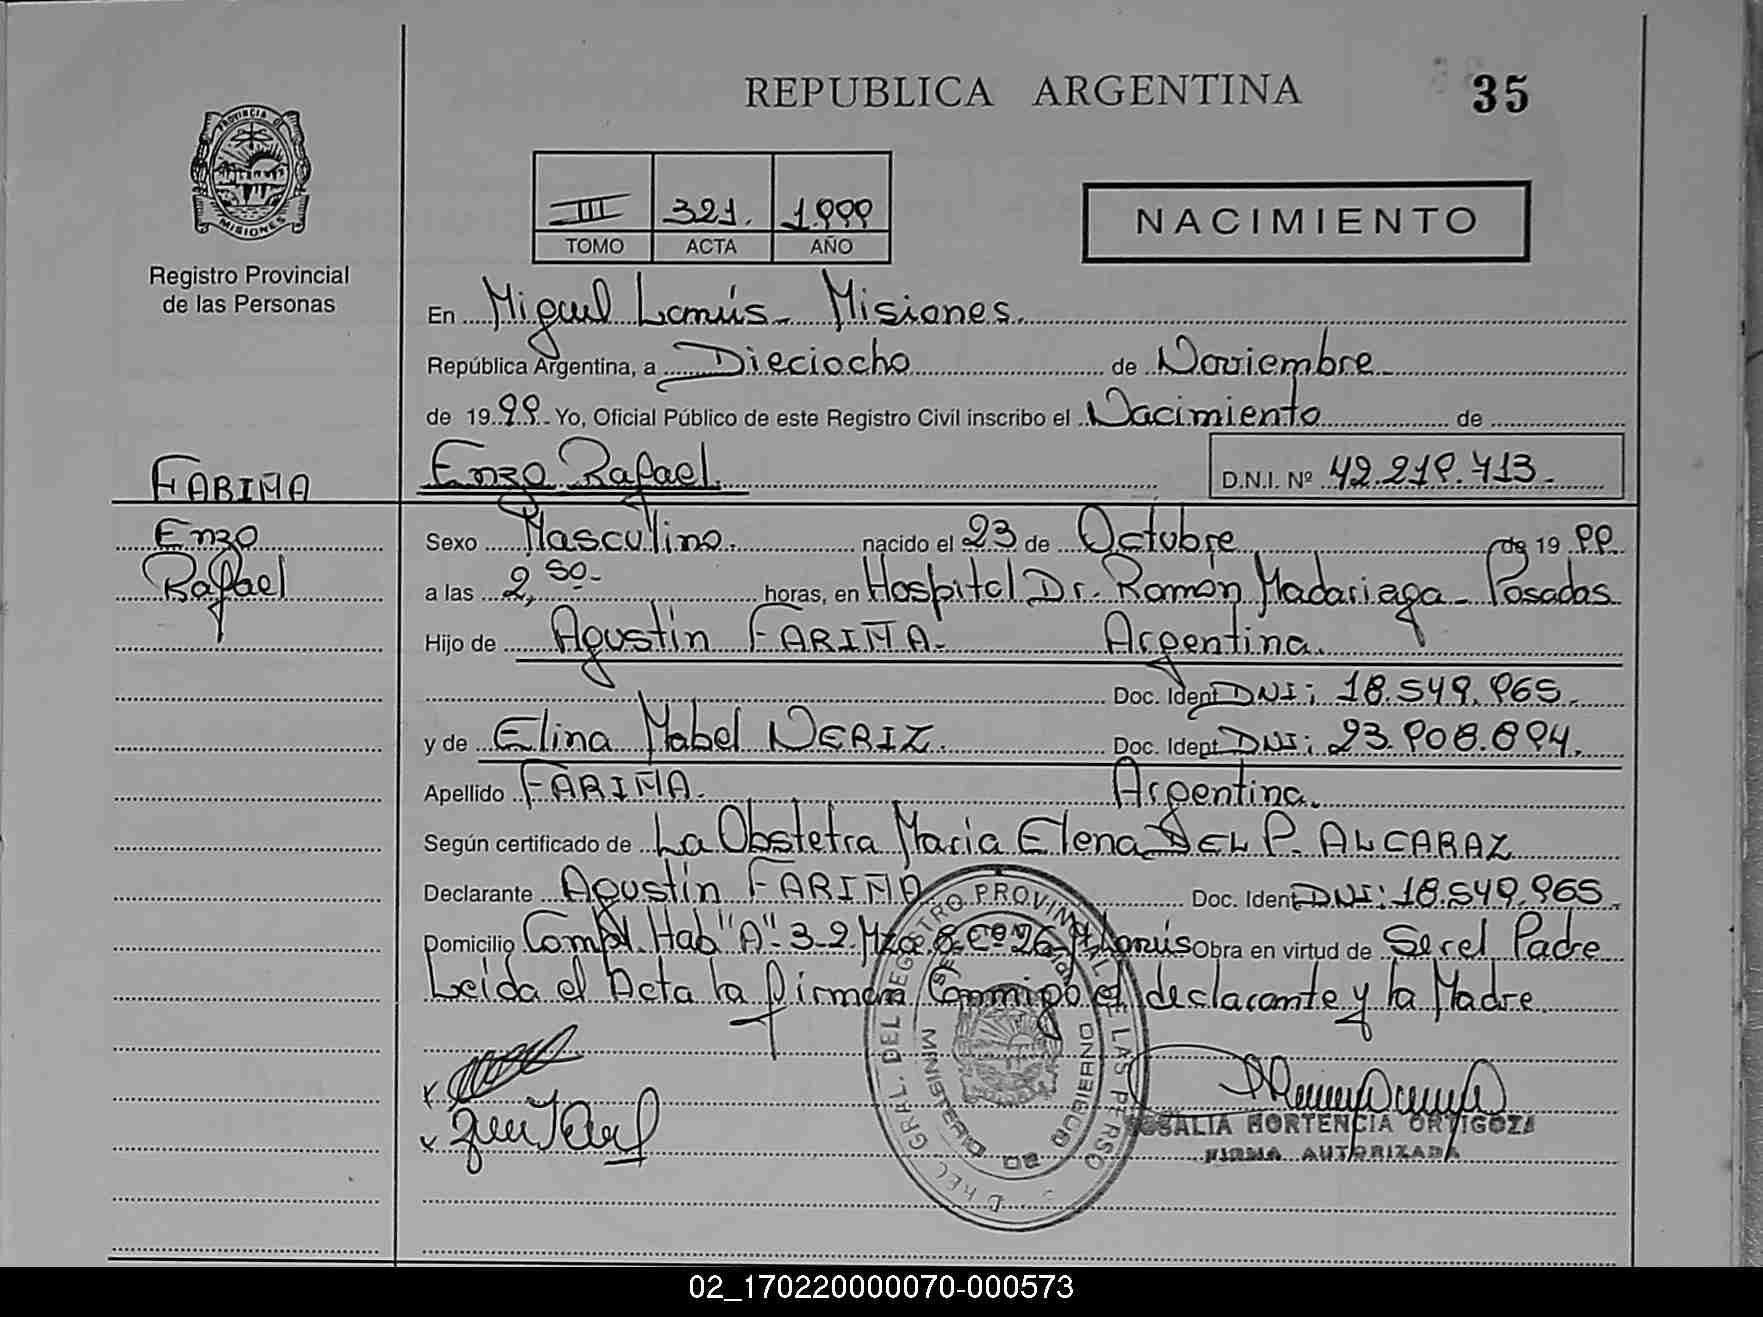 REPUBLICA ARGENTINA
35
PROVINCIA DE
MISIONES
Registro Provincial
de las Personas
III 321. 1.999
TOMO ACTA AÑO
NACIMIENTO
En Miguel Lanús - Misiones.
República Argentina, a Dieciocho de Noviembre
de 19 99 Yo, Oficial Público de este Registro Civil inscribo el Nacimiento de
FARIÑA
Enzo
Rafael
Enzo Rafael
D.N.I. Nº 42.219.713.-
Sexo Masculino. nacido el 23 de Octubre de 19 99
a las 2,50 horas, en Hospital Dr. Ramón Madariaga - Posadas
Hijo de Agustín FARIÑA. Argentina.
Doc. Ident DNI: 18.549.965.
y de Elina Mabel NERIZ. Doc. Ident. DNI: 23.908.894.
Apellido FARIÑA. Argentina.
Según certificado de La Obstetra Maria Elena DEL P. ALCARAZ
Declarante Agustín FARIÑA Doc. Ident DNI: 18.549.965.
Domicilio Compl. Hab "A" 3-2 Mza 8 Cº 26 M. Lanús Obra en virtud de Ser el Padre
Leida el Acta la firman Conmigo el declarante y la Madre
ROSALIA HORTENCIA ORTIGOZA
FIRMA AUTORIZADA
GRAL. DEL REGISTRO PROVINCIAL DE LAS PERSO
MINISTERIO DE GOBIERNO
02_170220000070-000573